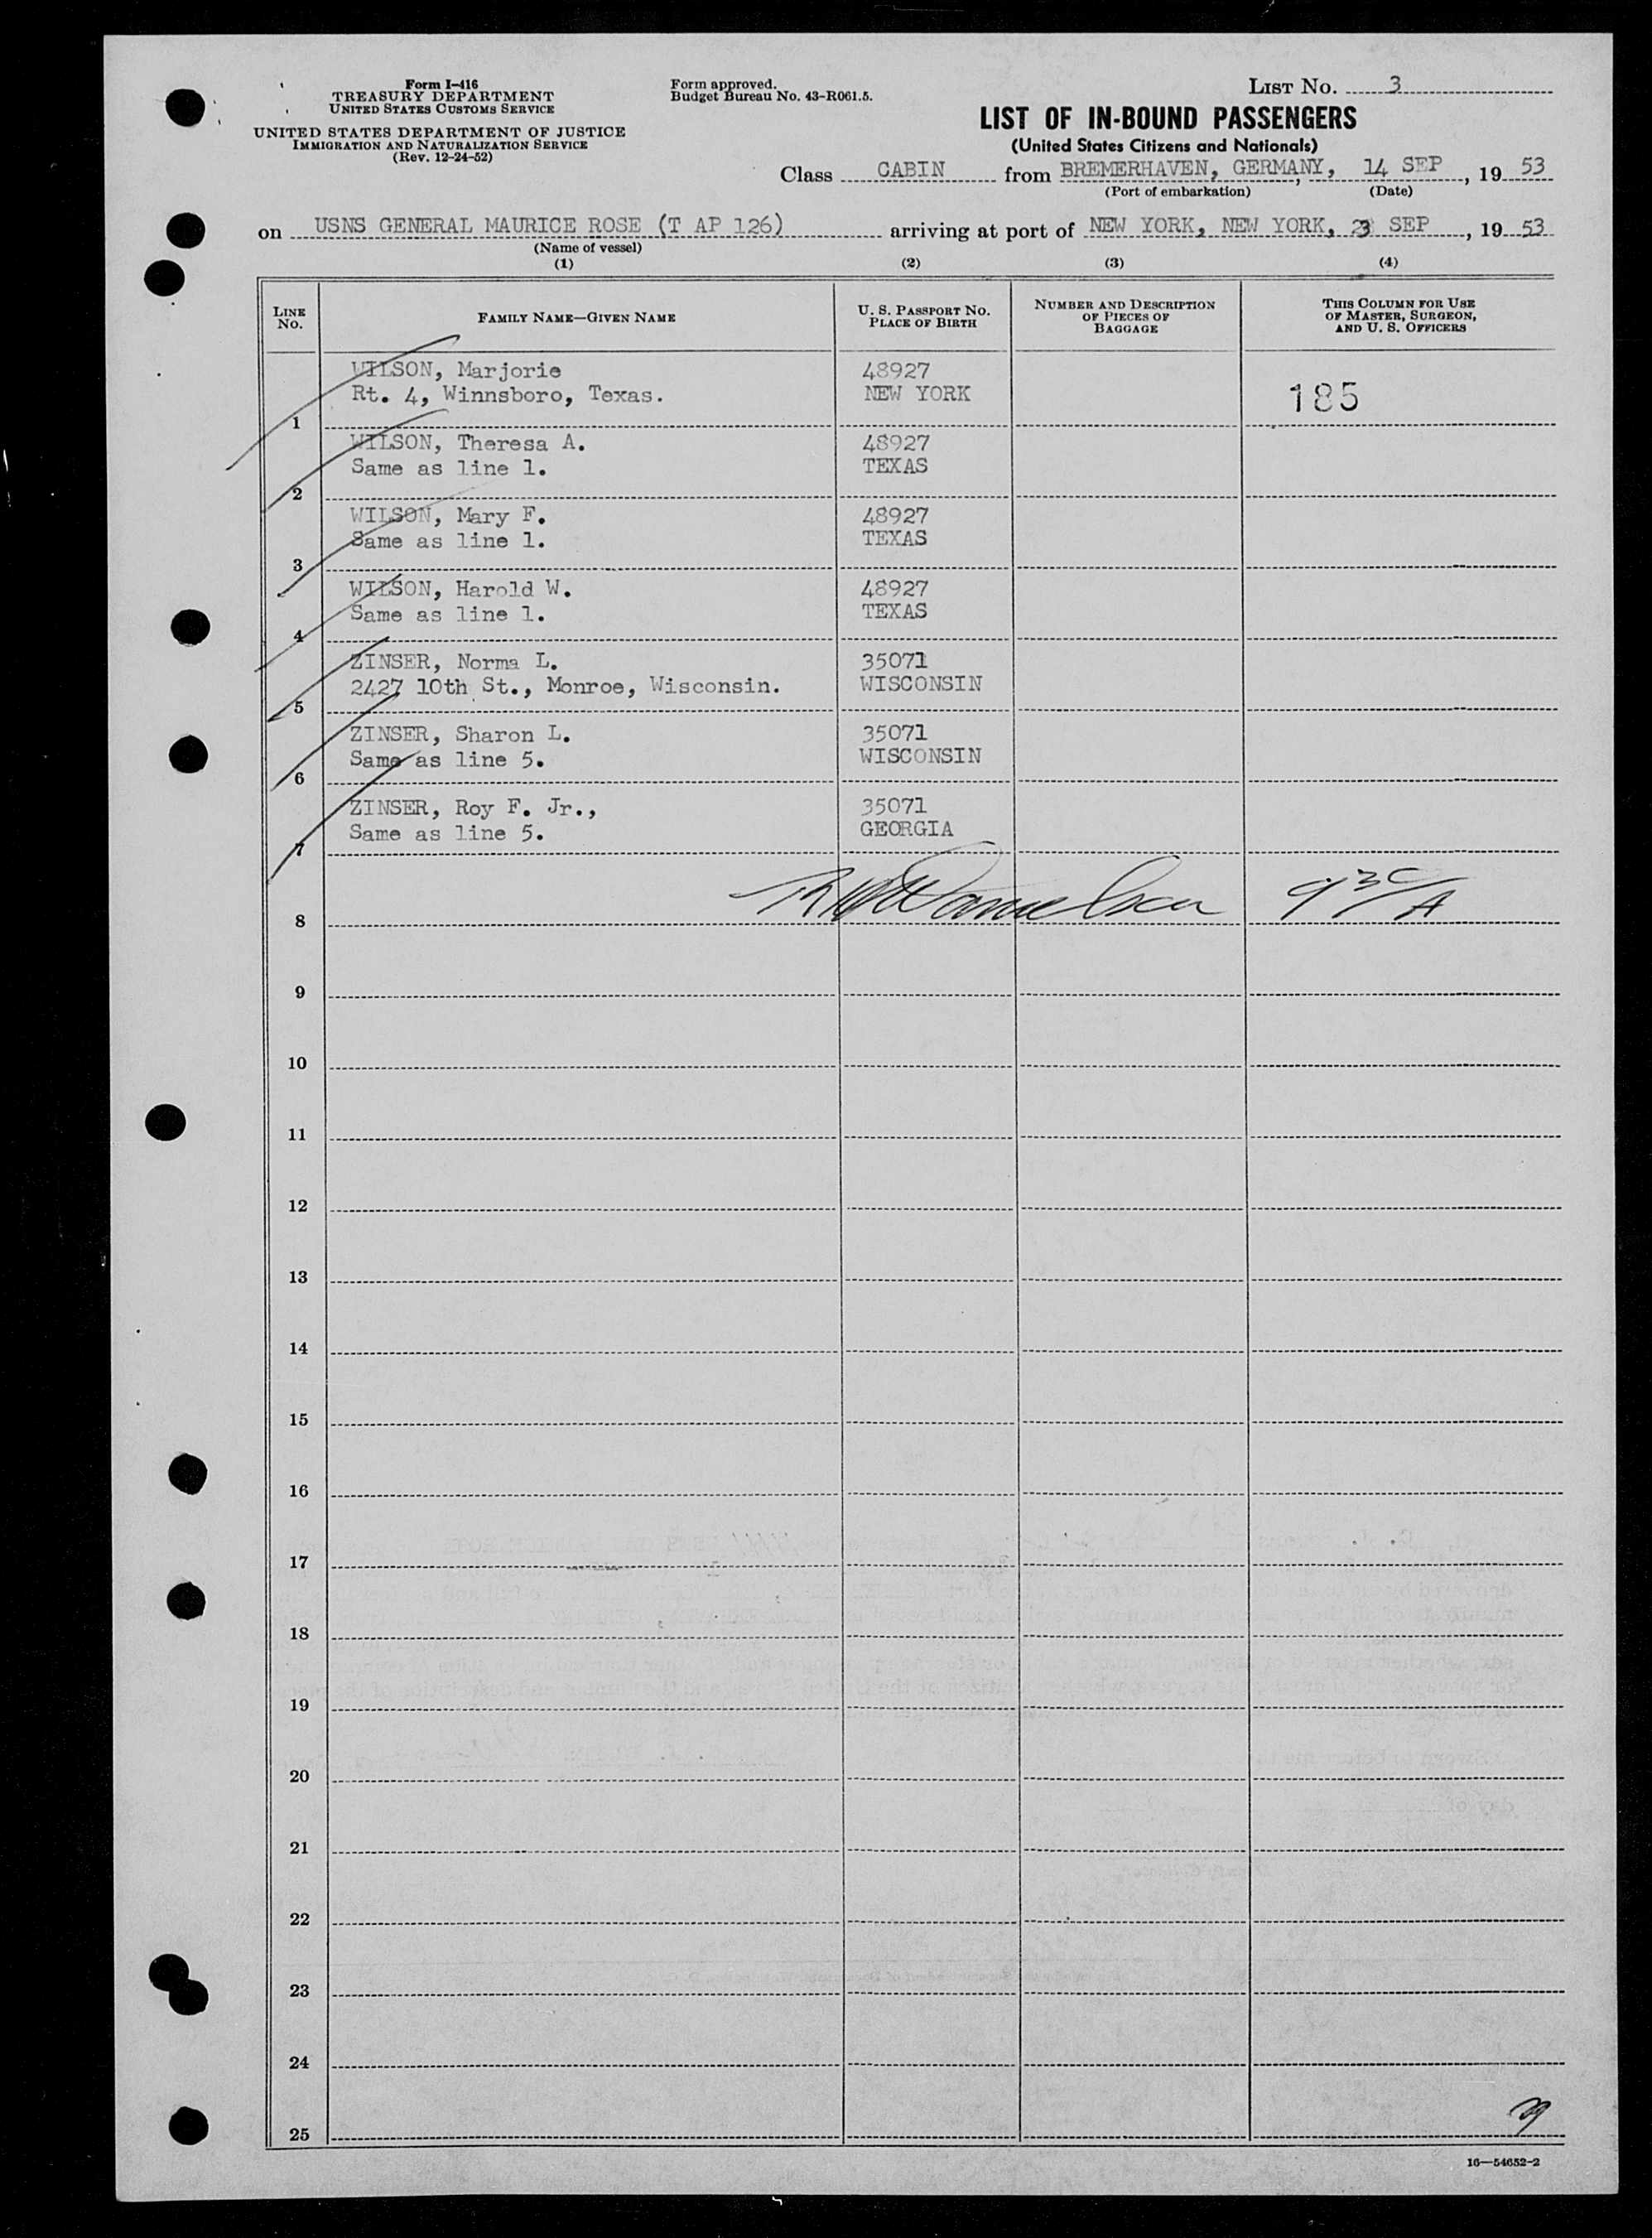 Form I-416
TREASURY DEPARTMENT
UNITED STATES CUSTOMS SERVICE
UNITED STATES DEPARTMENT OF JUSTICE
IMMIGRATION AND NATURALIZATION SERVICE
(Rev. 12-24-52)
Form approved.
Budget Bureau No. 43-R061.5.
LIST NO. 3
LIST OF IN-BOUND PASSENGERS
(United States Citizens and Nationals)
Class CABIN from BREMERHAVEN, GERMANY, 14 SEP, 19 53
(Port of embarkation) (Date)
on USNS GENERAL MAURICE ROSE (T AP 126) arriving at port of NEW YORK, NEW YORK, SEP, 19 53
(Name of vessel)
(1) (2) (3) (4)
LINE NO.
FAMILY NAME—GIVEN NAME
U. S. PASSPORT NO.
PLACE OF BIRTH
NUMBER AND DESCRIPTION
OF PIECES OF
BAGGAGE
THIS COLUMN FOR USE
OF MASTER, SURGEON,
AND U. S. OFFICERS
WILSON, Marjorie 48927
Rt. 4, Winnsboro, Texas. NEW YORK 185
1
WILSON, Theresa A. 48927
Same as line 1. TEXAS
2
WILSON, Mary F. 48927
Same as line 1. TEXAS
3
WILSON, Harold W. 48927
Same as line 1. TEXAS
4
ZINSER, Norma L. 35071
2427 10th St., Monroe, Wisconsin. WISCONSIN
5
ZINSER, Sharon L. 35071
Same as line 5. WISCONSIN
6
ZINSER, Roy F. Jr., 35071
Same as line 5. GEORGIA
7
8
9
10
11
12
13
14
15
16
17
18
19
20
21
22
23
24
25
16—54652-2